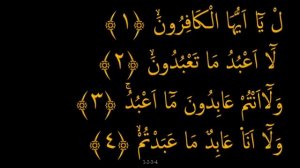 لْ يَٓا اَيُّهَا الْكَافِرُونَۙ ﴿١﴾
لَٓا اَعْبُدُ مَا تَعْبُدُونَۙ ﴿٢﴾
وَلَٓا اَنْتُمْ عَابِدُونَ مَٓا اَعْبُدُۚ ﴿٣﴾
وَلَٓا اَنَا۬ عَابِدٌ مَا عَبَدْتُمْۙ ﴿٤﴾
1-2-3-4.